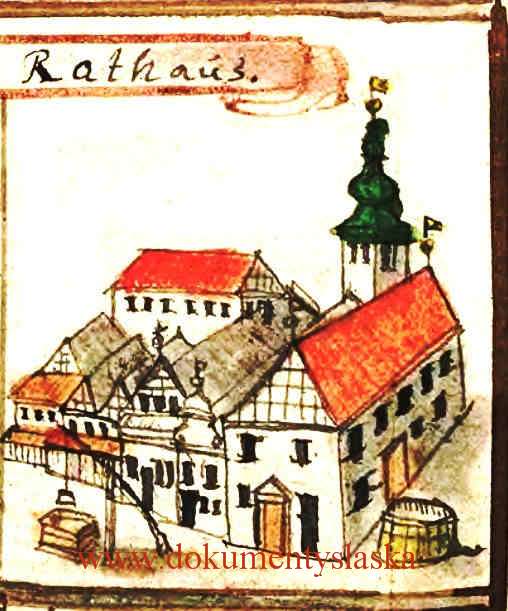 Rathaus.
www.dokumentyslaska